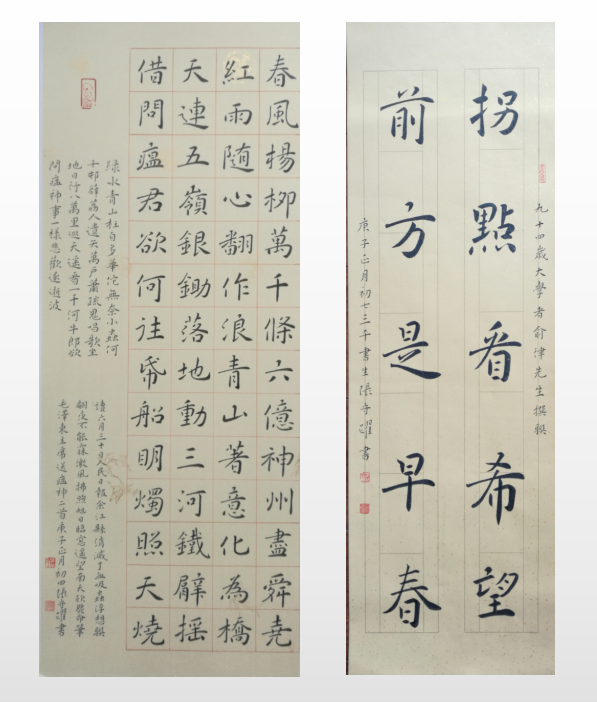 春風楊柳萬千條六億神州盡舜堯
紅雨隨心翻作浪青山著意化為橋
天連五嶺銀鋤落地動三河鐵臂摇
借問瘟君欲何往帋船明燭照天燒
綠水青山枉自多華佗無奈小蟲何
千邨薜荔人遺矢萬戶蕭疏鬼唱歌坐
地日行八萬里巡天遥看一千河牛郎欲
問瘟神事一樣悲歡逐逝波
讀六月三十日人民日報余江縣消滅了血吸蟲浮想聯
翩夜不能寐微風拂煦旭日臨窗遥望南天欣然命筆
毛澤東主席送瘟神二首庚子正月初四張守書
九十四歲大學者俞律先生撰聯
拐點看希望
前方是早春
庚子正月初七三千書生張守書